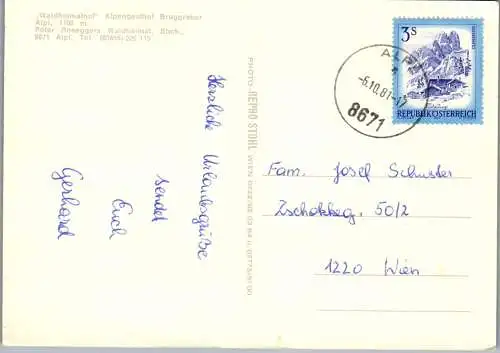 „Waldheimathof“ Alpengasthof Bruggraber
Alpl, 1100 m
Peter Roseggers Waldheimat, Stmk.,
8671 Alpl, Tel.
Herzliche Urlaubsgrüße
sendet
Euch
Gerhard
PHOTO HEPRO STOHL WIEN
3 S
REPUBLIK ÖSTERREICH
ALPL
-6.10.81-17
8671
Fam. Josef Schuster
Zschokkeg. 50/2
1220 Wien